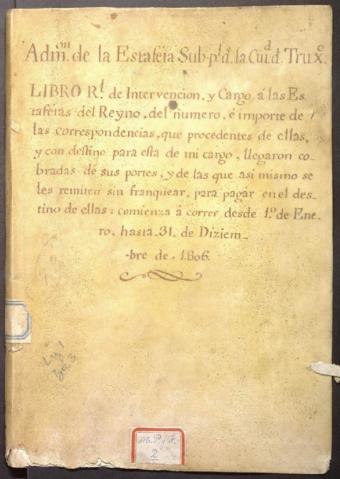 Adm.ⁿ de la Estafeia Sub-p.l d. la Ciu.d d. Trux.o
LIBRO R.l de Intervencion, y Cargo, á las Es
tafeias del Reyno, del numero, é importe de
las correspondencias, que procedentes de ellas,
y con destino para esta de mi cargo, llegaron co-
bradas de sus portes, y de las que asi mismo se
les remiten sin franquear, para pagar en el des-
tino de ellas: comienza á correr desde 1.º de Ene-
ro, hasta 31 de Diziem-
-bre de 1806.
M.P. y F.
2